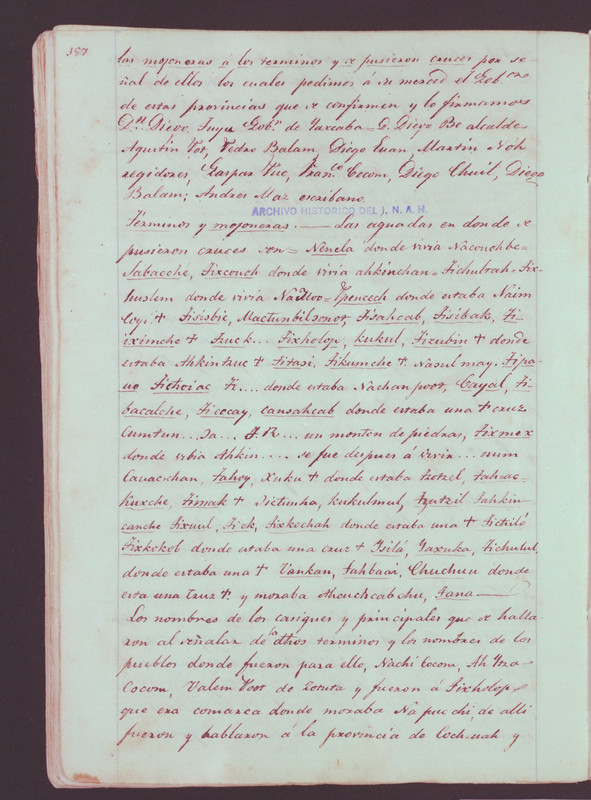 387
las mojoneras á los terminos y se pusieron cruces por se-
ñal de ellos los cuales pedimos á su merced el Gob.
de estas provincias que se confirmen y lo firmamos
Dn Diego, Tuyu Gobr. de Yaxcaba = D. Diego Be alcalde
Agustin Pot, Pedro Balam, Diego Euan Martin Noh
regidores, Gaspar Tuc, Franco Cocom, Diego Chuil, Diego
Balam; Andres Maz escribano.
ARCHIVO HISTORICO DEL I. N. A. H.
Términos y mojoneras. — Las aguadas en donde se
pusieron cruces son = Nenela donde vivia Nacouohbe=
Sabacche, Tixconch donde vivia ahkinchan = Tichulvah = Tix-
huslem donde vivia = Tpencech donde estaba Naim
Coyi. † Tisisbic, Mactunbilsonot, Tisahcab, Tisébak, Ti-
iximche † Tzuck... Tixholop, kukul, Tizubin † donde
estaba Ahkintzuc † Titasi, Tikumche † Nasulmay. Tipa-
uo Tichoiac Ti.... donde estaba Nachanpoot, Cayal, ti-
bacalche, Ticocay, cansahcab donde estaba una † cruz
Cumtun... Sa... J. R... un monton de piedras, Tixmex
donde vibia Ahkin.... se fue despues á vivir... num
Cauacchan, Tahoy, Xuku † donde estaba Tzotzel, tahcac-
Kuxche, Timak † Sictunha, kukulmul, tzutzil tahkin-
canche Tixuul, Tiek, Tixkochah donde estaba una † Tichilé
Tixkokob donde estaba una cruz † Tsilá, Yaxuka, Tichulul,
donde estaba una † Yankan, Tahbaai, Chuchuu donde
esta una cruz † y moraba Ahcuchcabchu, Tana —
Los nombres de los casiques y principales que se halla-
ron al señalar de los dhos terminos y los nombres de los
pueblos donde fueron para ello, Nachi Cocom, Ah Ytza-
Cocom, Valem Poot de Zotuta y fueron á Tixholop
que era comarca donde moraba Na puc chi, de alli
fueron y hablaron á la provincia de Coch-uah y